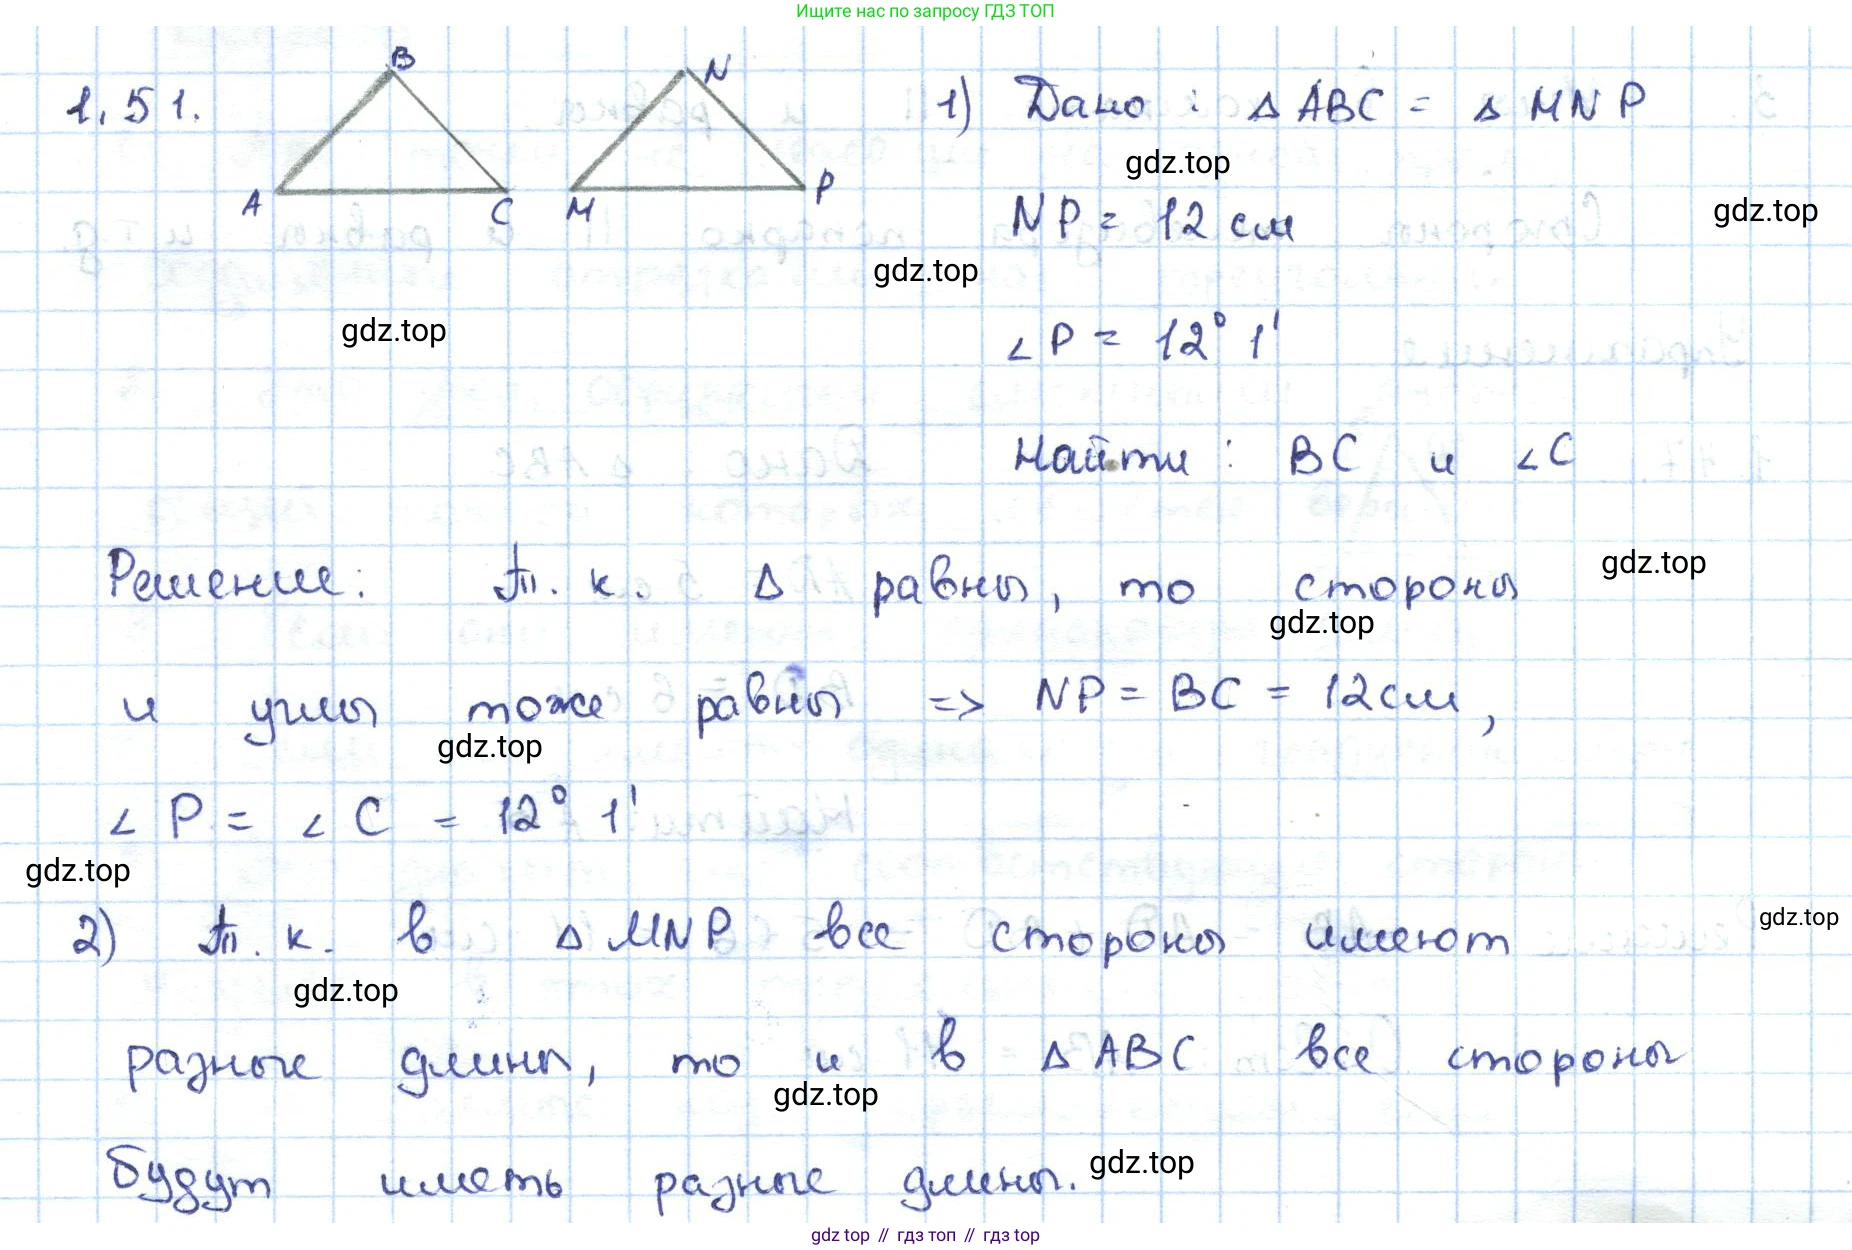 Ищите нас по запросу ГДЗ ТОП
1.51.
B
A
C
N
M
P
1) Дано : Δ ABC = Δ MNP
gdz.top
NP = 12 см
gdz.top
gdz.top
gdz.top
∠ P = 12° 1'
Найти : BC и ∠C
Решение: Т. к. Δ равны, то стороны
gdz.top
gdz.top
и углы тоже равны => NP = BC = 12см,
gdz.top
∠ P = ∠ C = 12° 1'
gdz.top
2) Т. к. в Δ MNP все стороны имеют
gdz.top
gdz.top
разные длины, то и в Δ ABC все стороны
gdz.top
будут иметь разные длины.
gdz.top
gdz top // гдз топ // гдз top